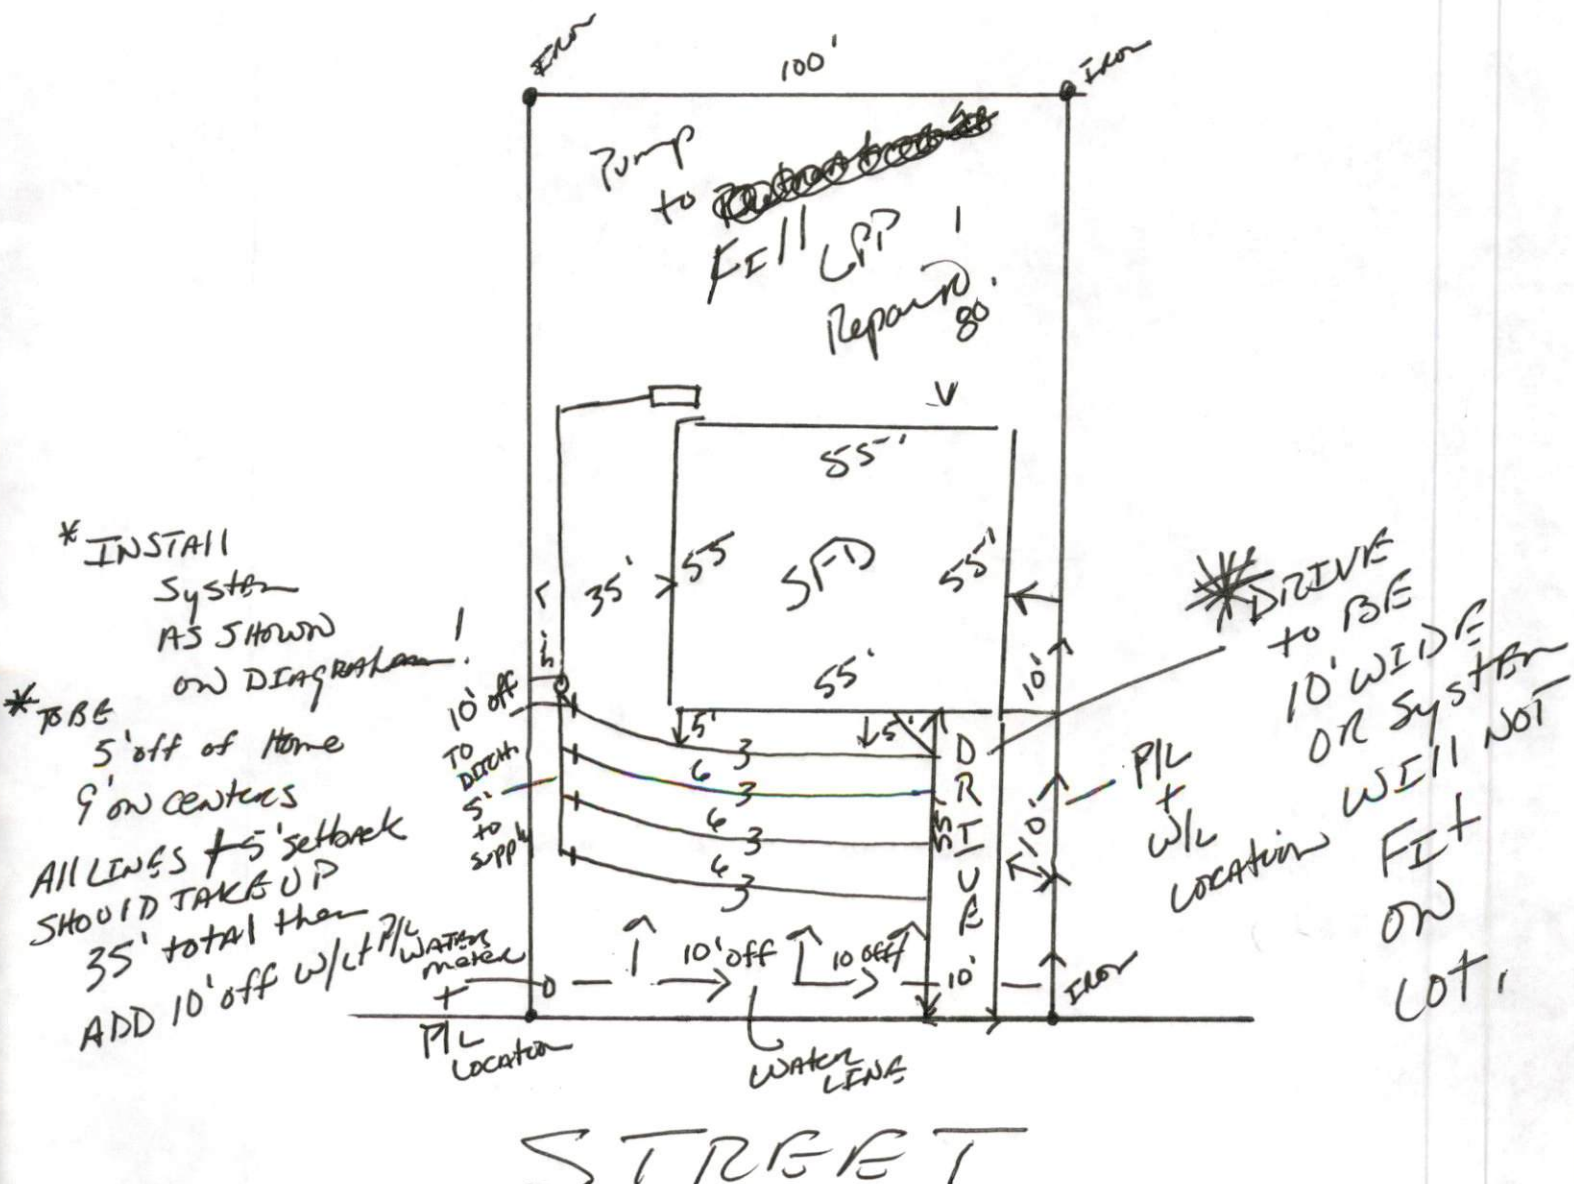 Iron
100'
Iron
Pump
to
Fill LPP
Repair!
80'
55'
35'
55
SFD
55'
55'
10'
* INSTAll
System
AS SHOWN
ON DIAGRAM!
* TO BE
5' off of Home
9' on centers
All LINES + 5' setback
SHOULD TAKE UP
35' total then
ADD 10' off W/L + P/L
10' off
TO
DITCH.
5'
to
supply
5'
5'
3
6
3
6
3
6
3
DRIVE
55'
10'
* DRIVE
to BE
10' WIDE
OR System
WIll NOT
FIt
ON
LOT.
P/L
+
W/L
LOCATION
WATER
meter
+
P/L
LOCATION
10' off
10 off
10'
IRON
WATER
LINE
STREET